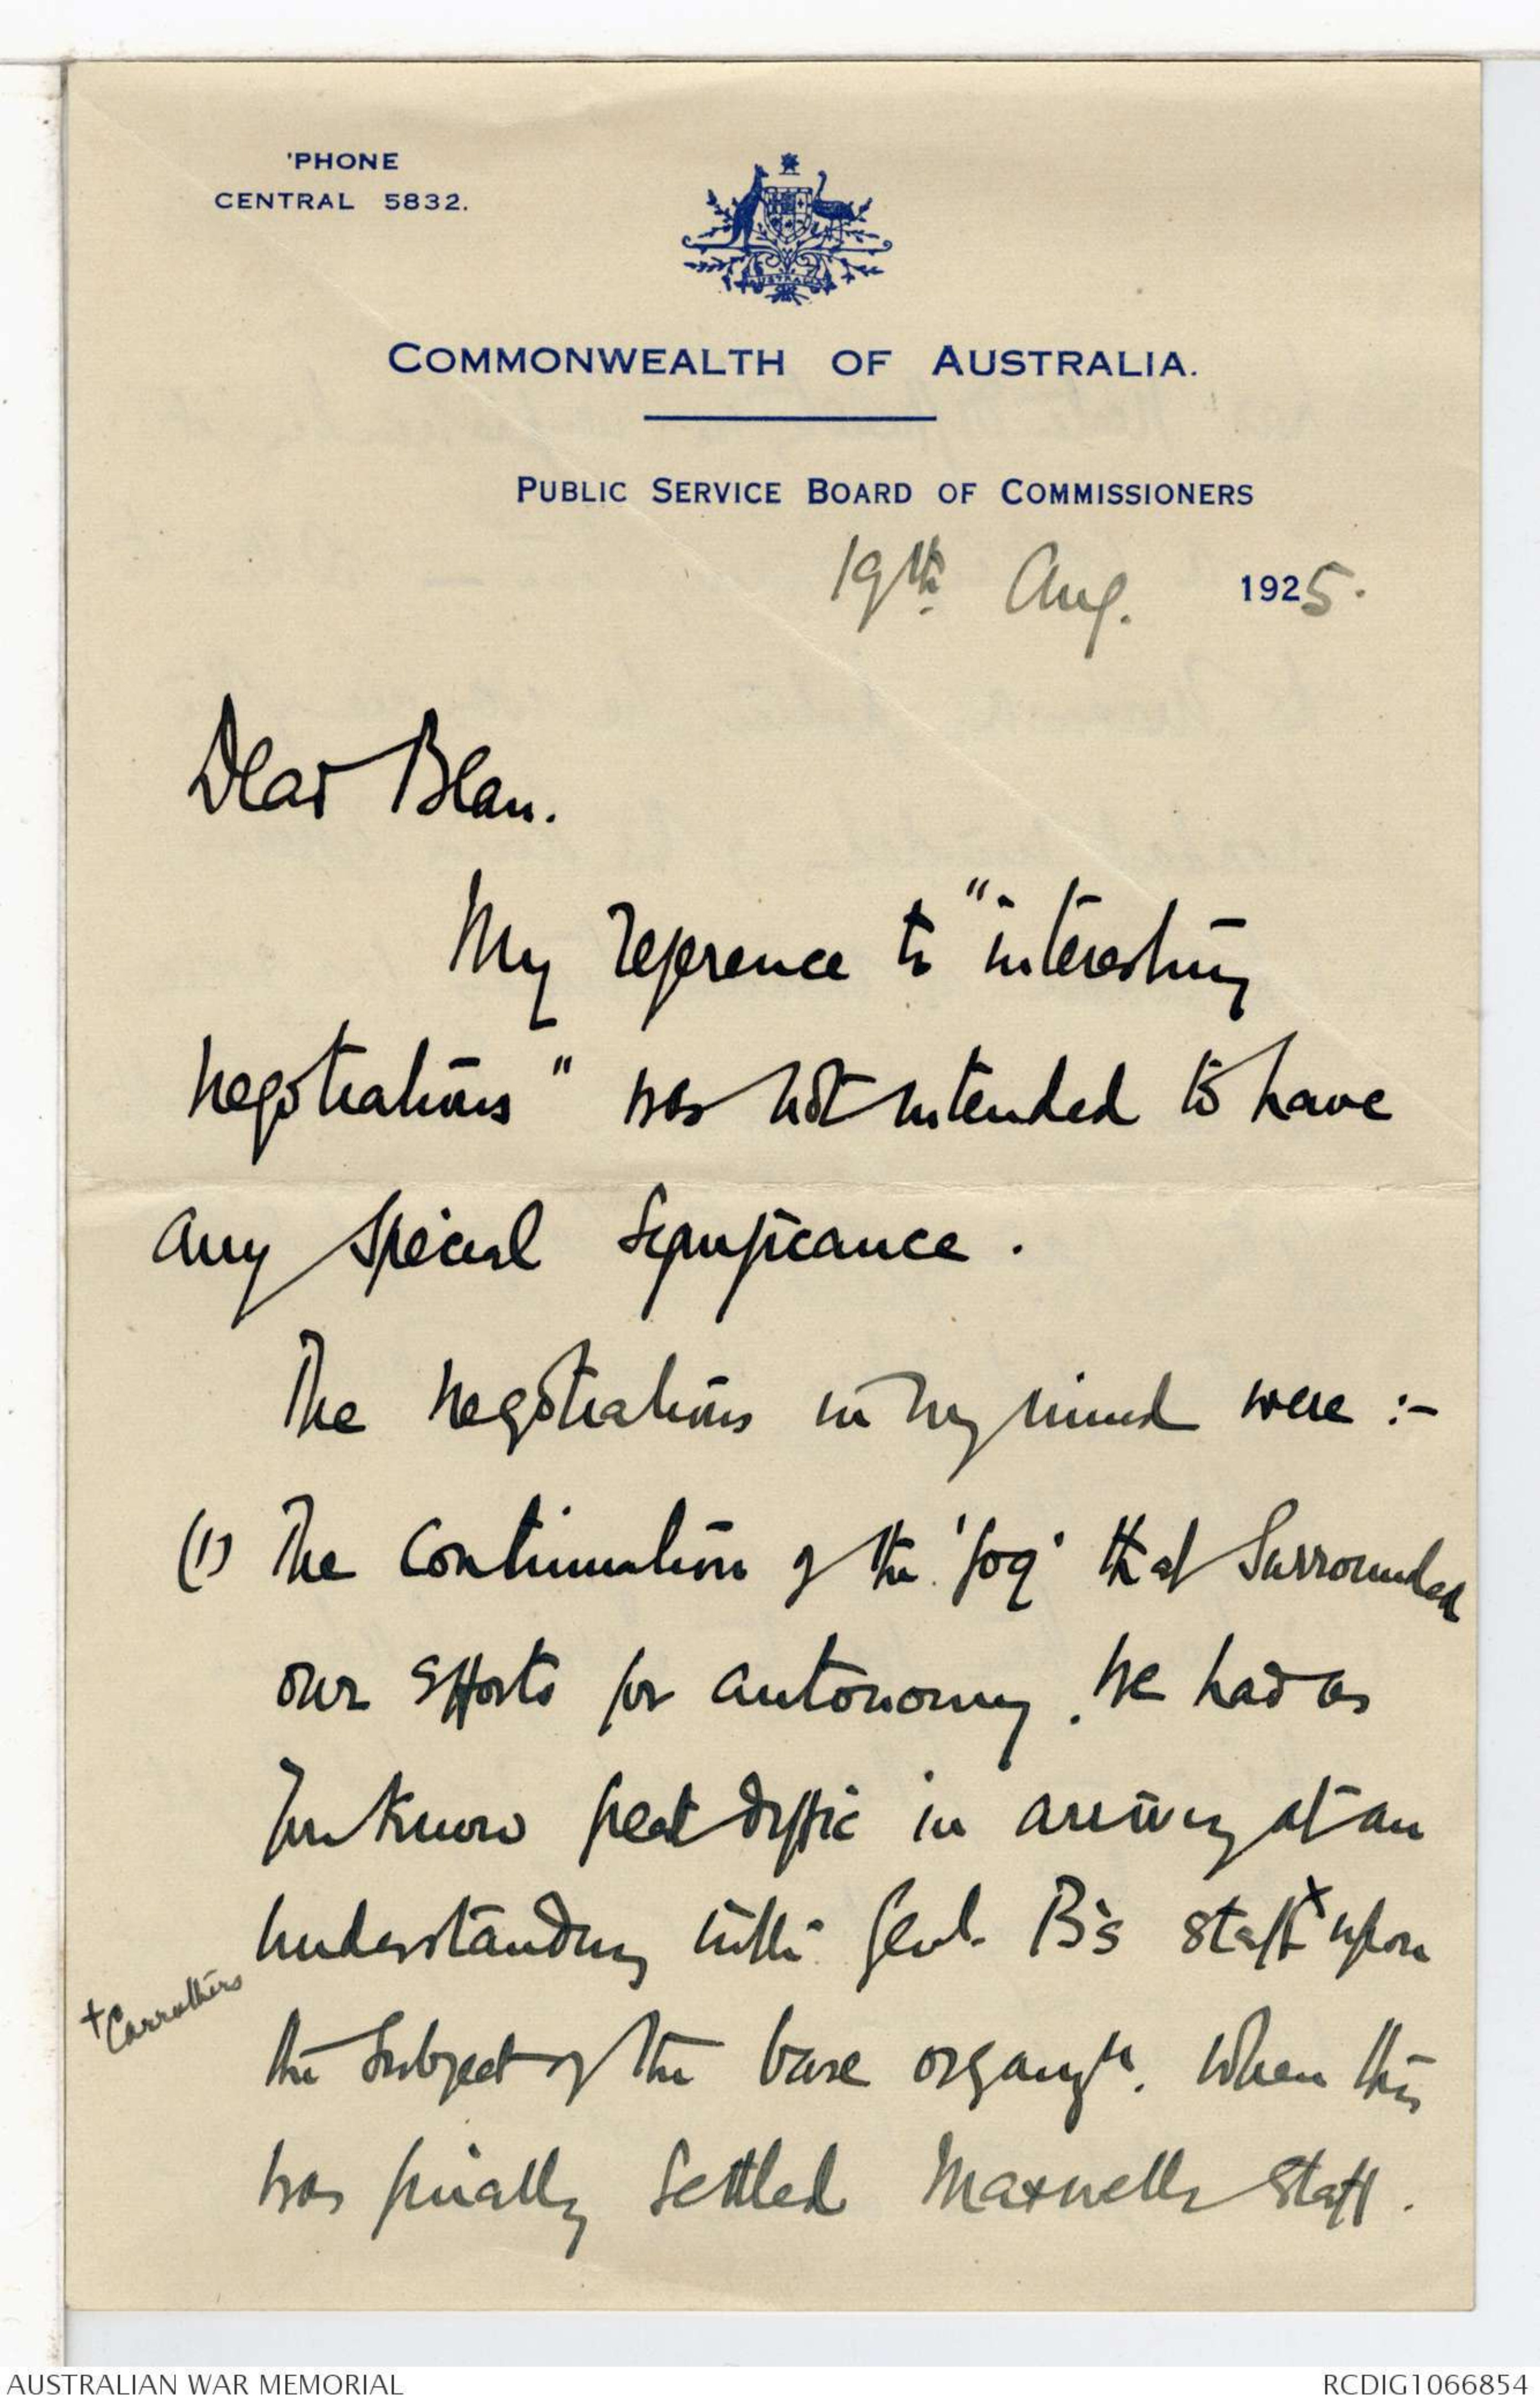 'PHONE
CENTRAL 5832.
AUSTRALIA
COMMONWEALTH OF AUSTRALIA.
PUBLIC SERVICE BOARD OF COMMISSIONERS
19th Aug. 1925.
Dear Bean.
My reference to "interesting
negotiations" was not intended to have
any special significance.
The negotiations in my mind were :-
(1) The continuation of the 'fog' that surrounded
our efforts for autonomy. We had as
you know great diffic in arriving at an
understanding with Genl. B's staff x upon
x Carruthers
the subject of the base organztn. When this
was finally settled Maxwells staff.
AUSTRALIAN WAR MEMORIAL
RCDIG1066854